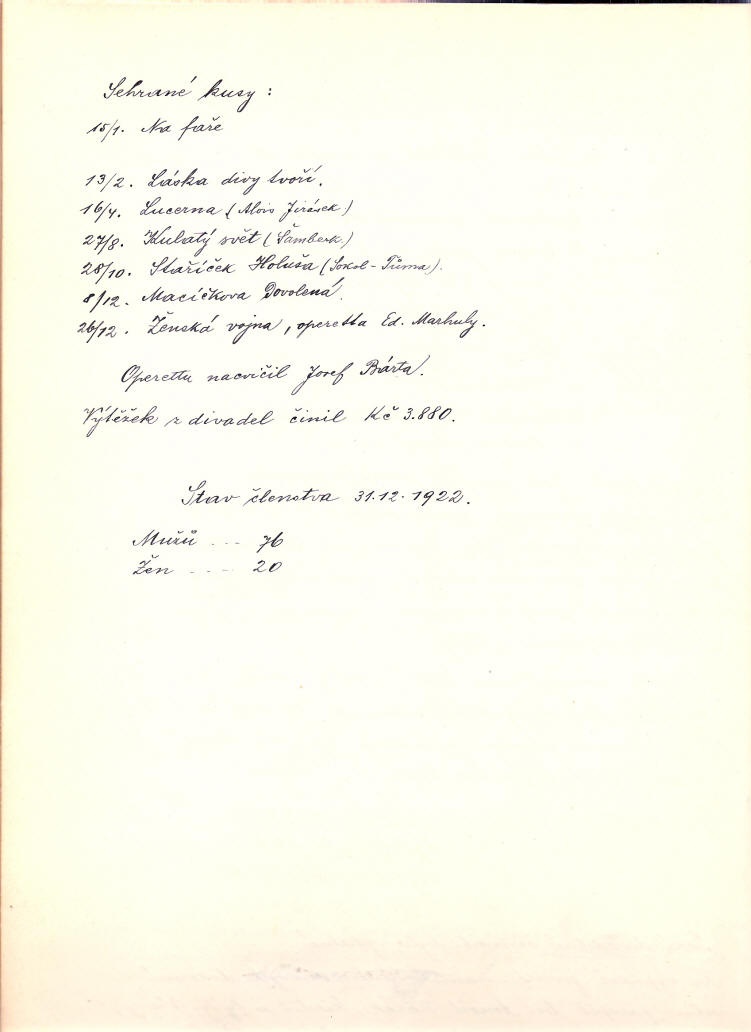 Sehrané kusy :
15/1. Na faře
13/2. Láska divy tvoří.
16/4. Lucerna (Alois Jirásek)
27/8. Kulatý svět (Šamberk.)
28/10. Staříček Holuša (Sokol-Tůma).
8/12. Macíčkova Dovolená.
26/12. Ženská vojna, operetta Ed. Marhuly.
Operettu nacvičil Josef Bárta.
Výtěžek z divadel činil Kč 3.880.
Stav členstva 31.12.1922.
Mužů .... 76
Žen .... 20